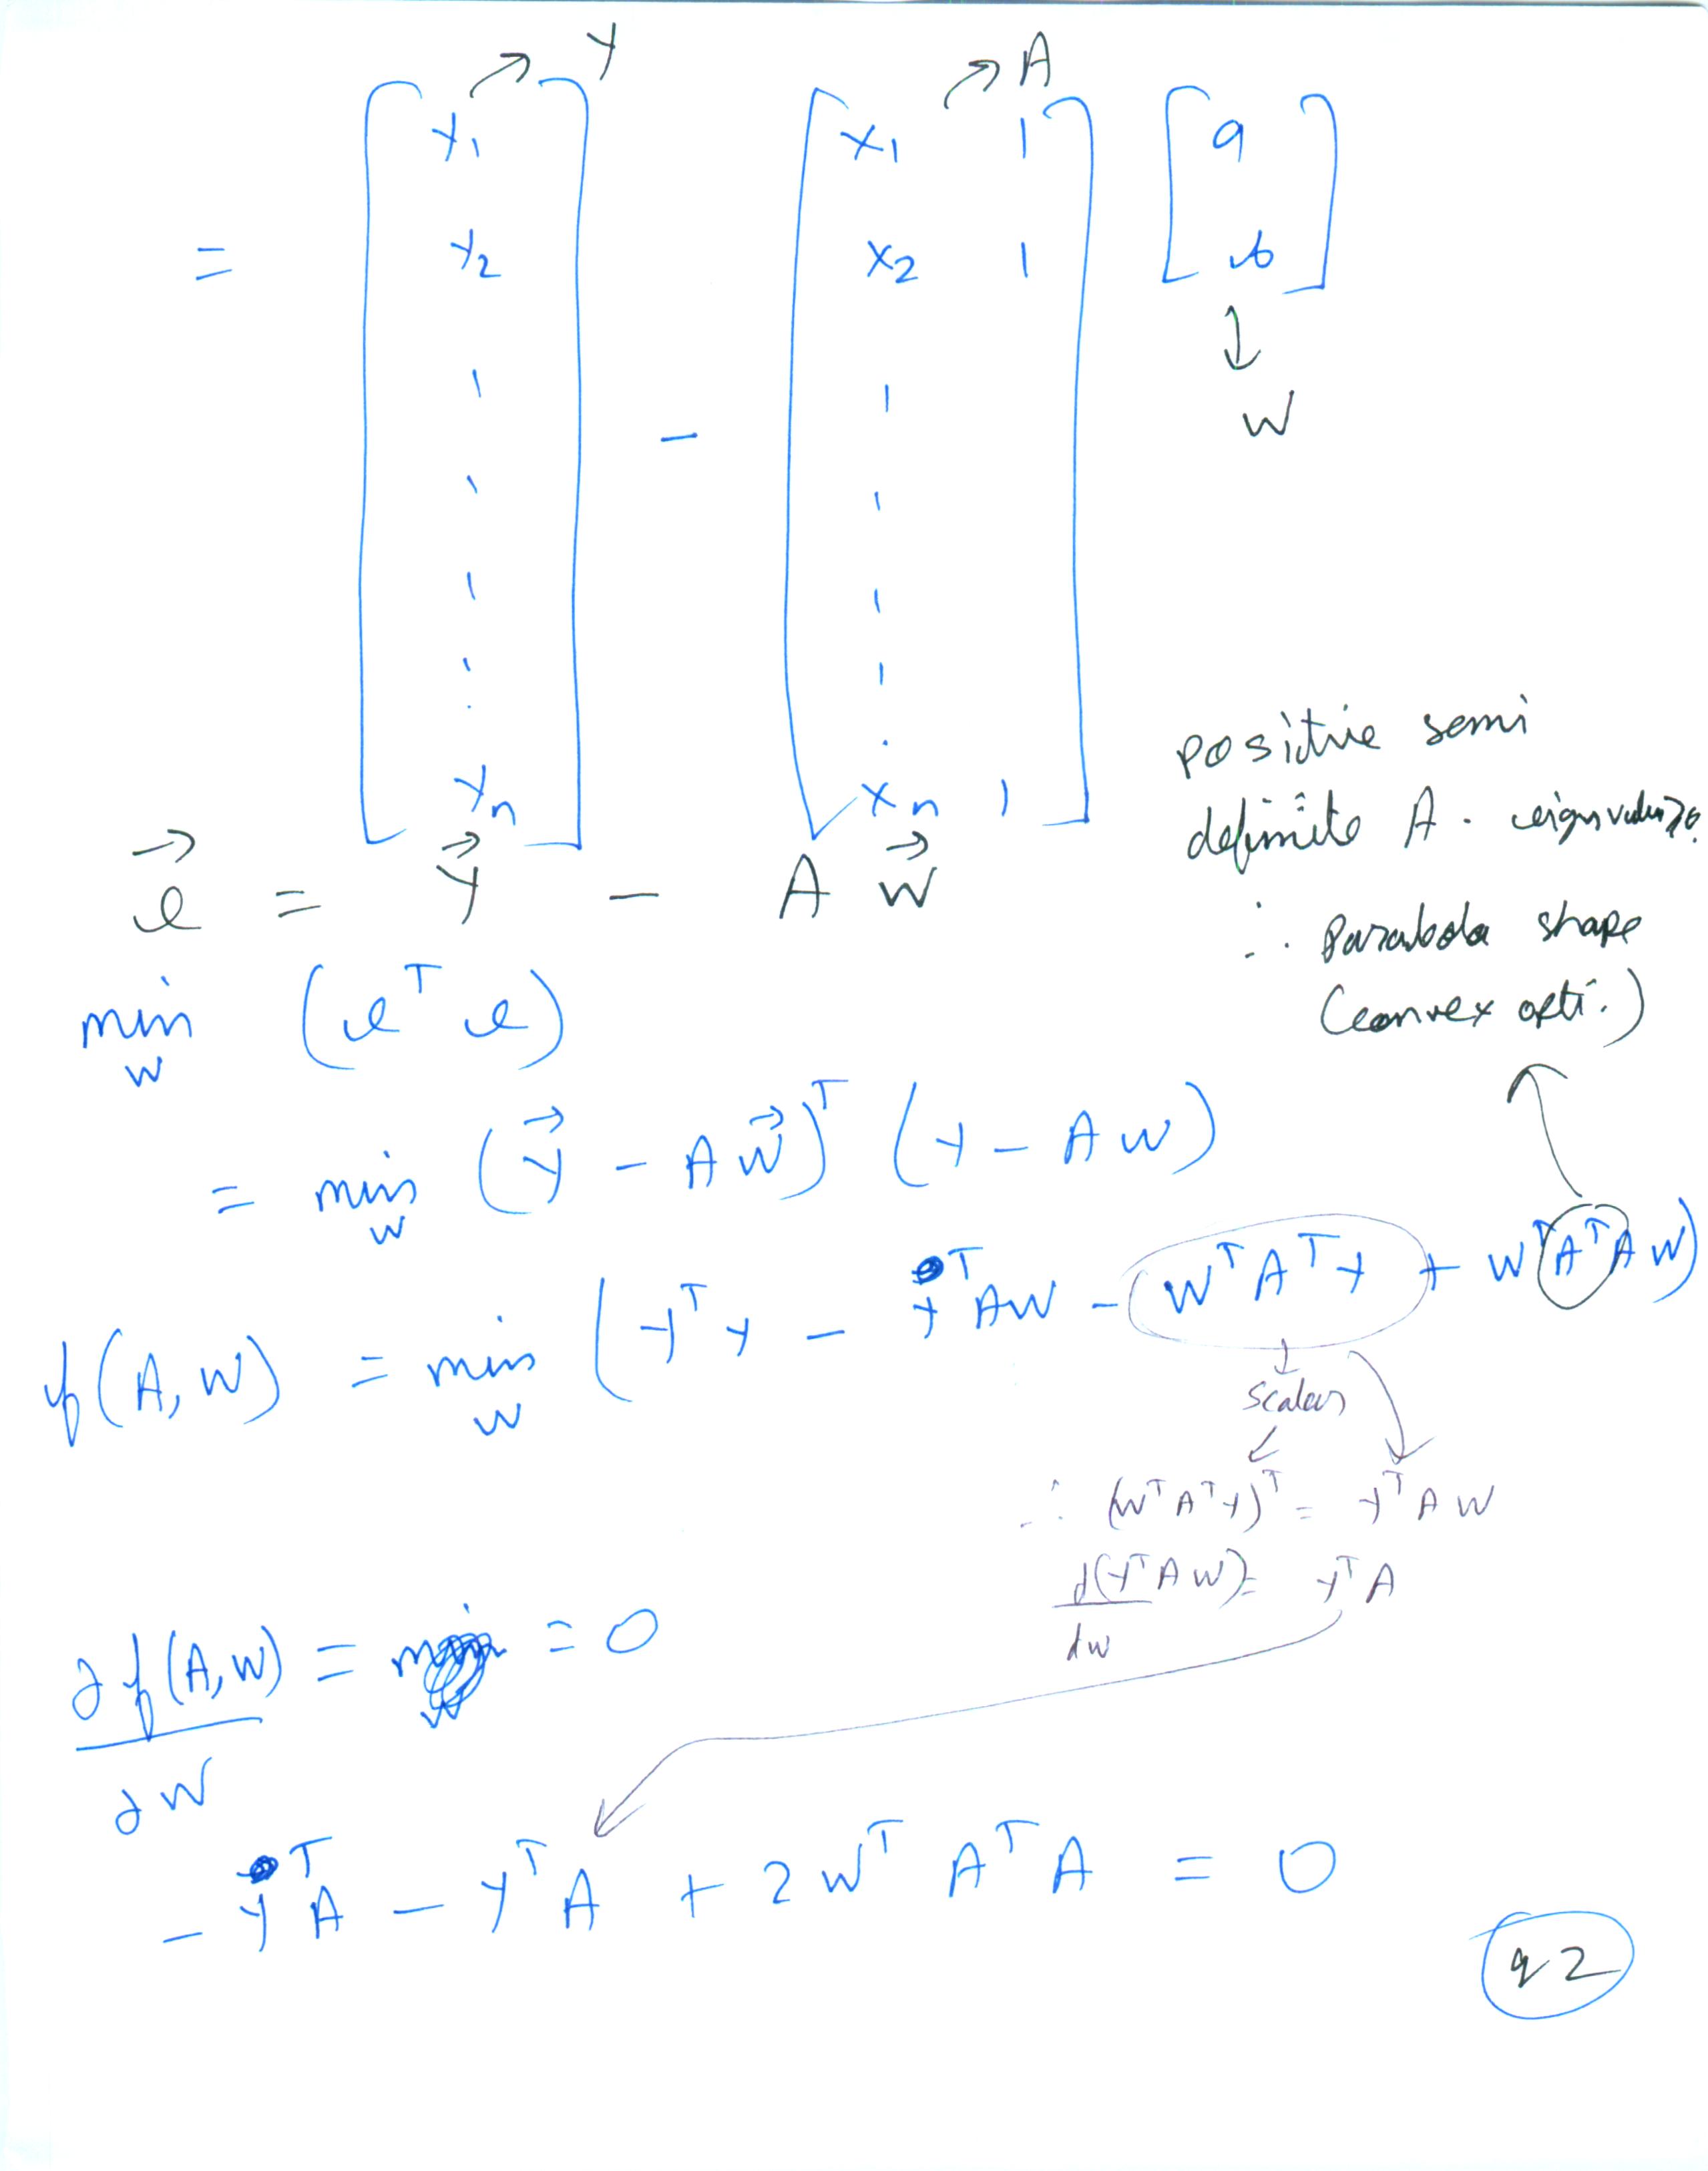 → Y → A
= [ y₁ ] [ x₁ 1 ] [ a ]
[ y₂ ] − [ x₂ 1 ] [ b ]
↓
W
[ yₙ ] [ xₙ 1 ]
positive semi
definite A. eigenvalues ≥ 0.
∴ parabola shape
(convex opti.)
e⃗ = Y⃗ − A W⃗
min_W (eᵀ e)
= min_W (y⃗ − A W⃗)ᵀ (y − A W)
f(A, W) = min_W (yᵀ y − yᵀ A W − Wᵀ Aᵀ y + Wᵀ Aᵀ A W)
scalar
∴ (Wᵀ Aᵀ y)ᵀ = yᵀ A W
d(yᵀ A W)/dW = yᵀ A
∂f(A, W)/∂W = = 0
− yᵀ A − yᵀ A + 2 Wᵀ Aᵀ A = 0